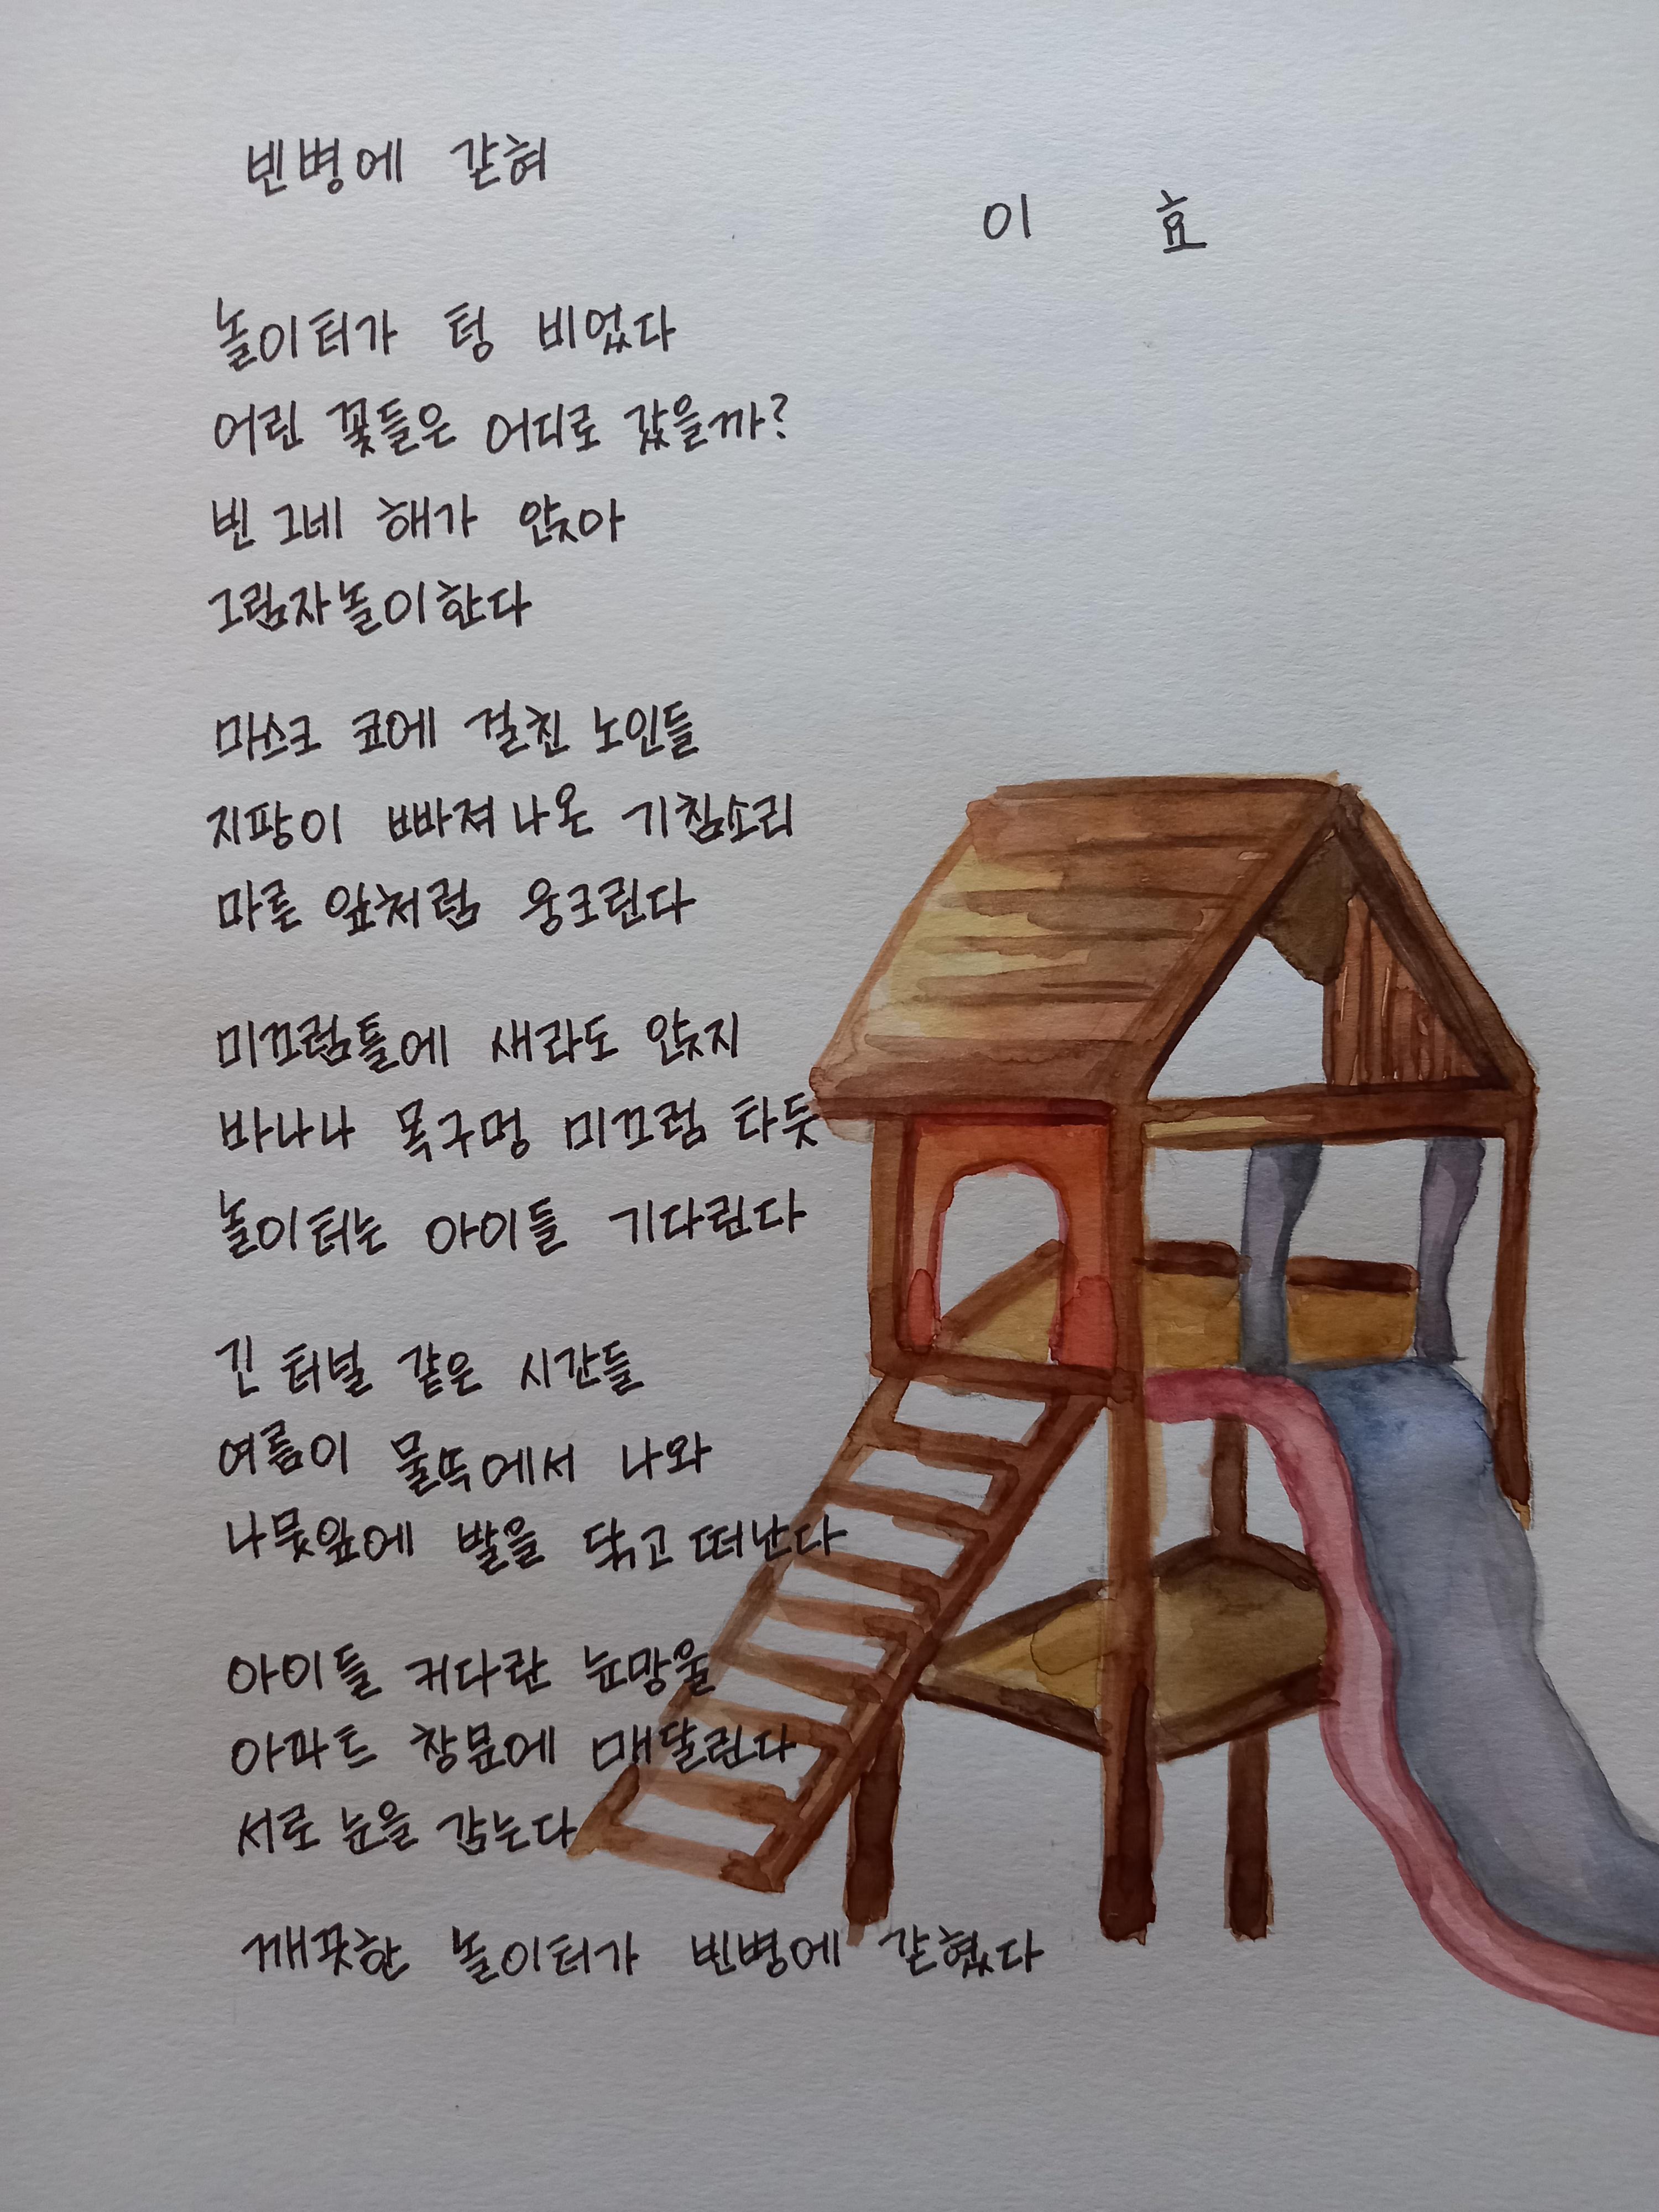 빈병에 갇혀
이 효
놀이터가 텅 비었다
어린 꽃들은 어디로 갔을까?
빈 그네 해가 앉아
그림자놀이한다
마스크 코에 걸친 노인들
지팡이 빠져나온 기침소리
마른 잎처럼 웅크린다
미끄럼틀에 새라도 앉지
바나나 목구멍 미끄럼 타듯
놀이터는 아이들 기다린다
긴 터널 같은 시간들
여름이 물뚝에서 나와
나뭇잎에 발을 닦고 떠난다
아이들 커다란 눈망울
아파트 창문에 매달린다
서로 눈을 감는다
깨끗한 놀이터가 빈병에 갇혔다